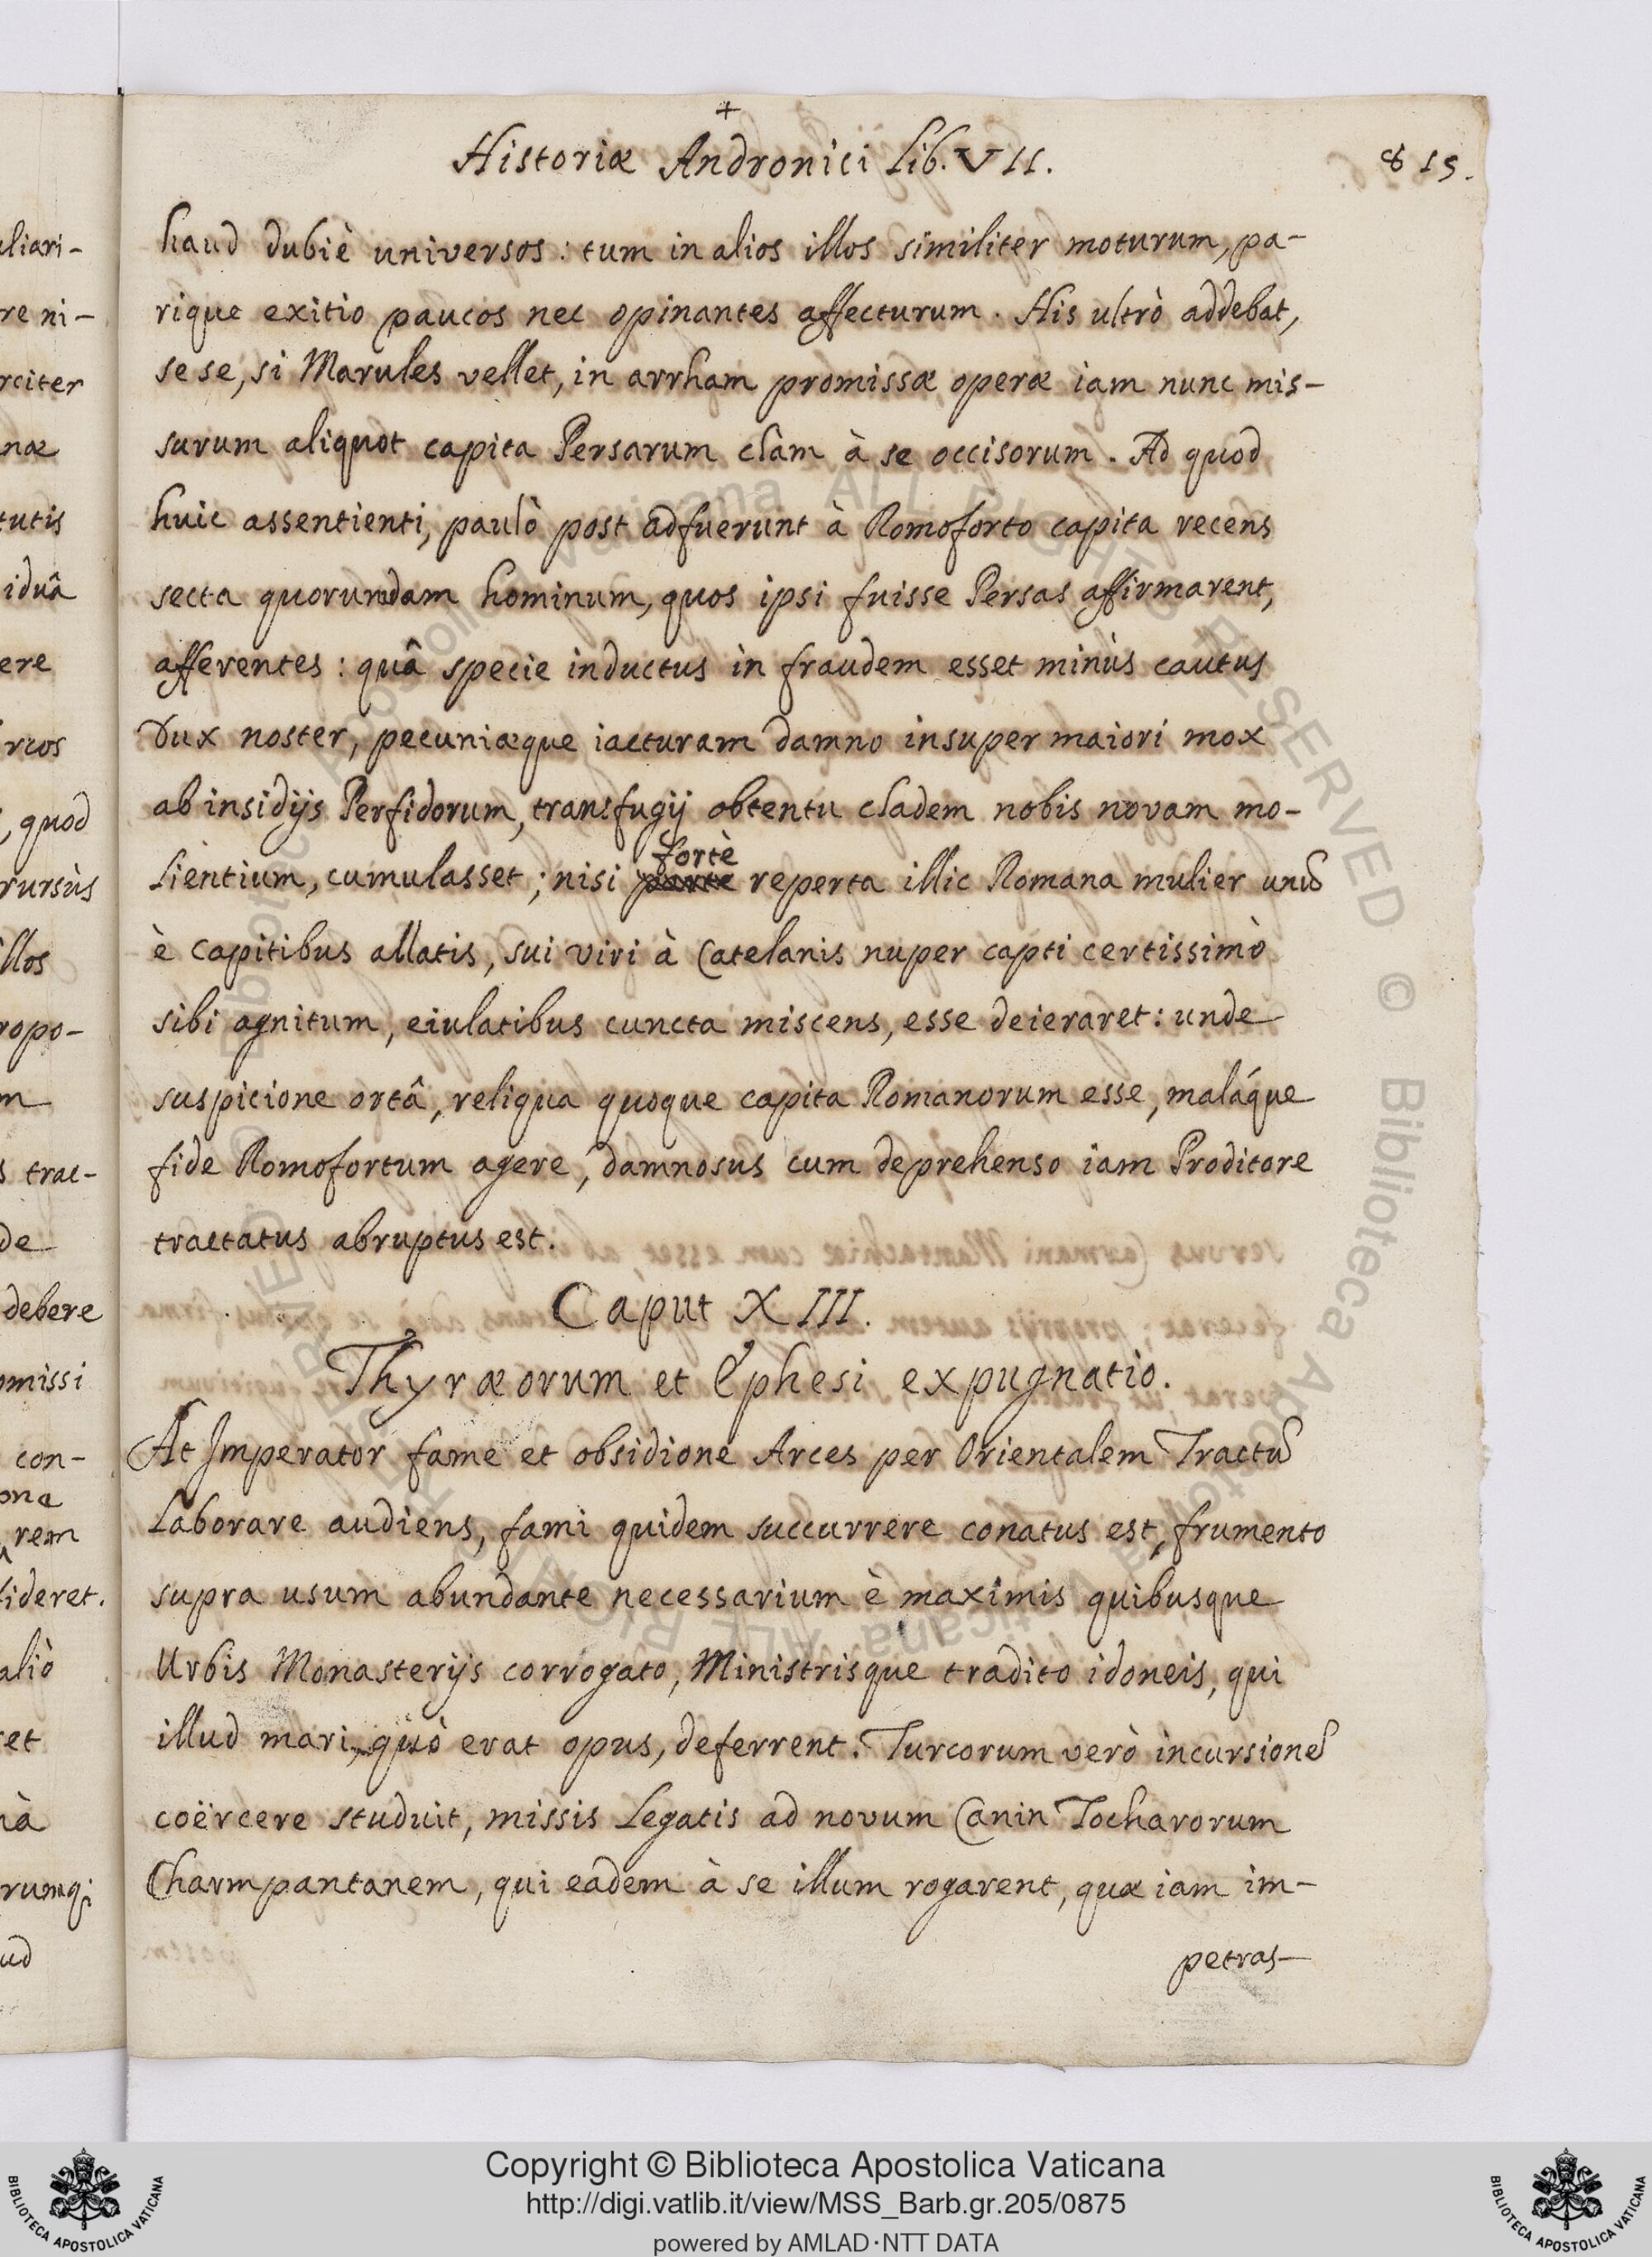 +
Historiæ Andronici Lib. VII.
819.
haud dubiè universos: tum in alios illos similiter moturum, pa-
rique exitio paucos nec opinantes affecturum. His ultrò addebat,
se se, si Marules vellet, in arrham promissæ operæ iam nunc mis-
surum aliquot capita Persarum clàm à se occisorum. Ad quod
huic assentienti, paulò post adfuerunt à Romoforto capita recens
secta quorundam hominum, quos ipsi fuisse Persas affirmarent,
afferentes: quâ specie inductus in fraudem esset minùs cautus
Dux noster, pecuniæque iacturam damno insuper maiori mox
ab insidijs Perfidorum, transfugij obtentu cladem nobis novam mo-
lientium, cumulasset; nisi fortè reperta illic Romana mulier unũ
è capitibus allatis, sui viri à Catelanis nuper capti certissimò
sibi agnitum, eiulatibus cuncta miscens, esse deieraret: unde
suspicione ortâ, reliqua quoque capita Romanorum esse, maláque
fide Romofortum agere, damnosus cum deprehenso iam Proditore
tractatus abruptus est.
Caput XIII.
Thyræorum et Ephesi expugnatio.
At Imperator fame et obsidione Arces per Orientalem Tractũ
laborare audiens, fami quidem succurrere conatus est, frumento
supra usum abundante necessarium è maximis quibusque
Urbis Monasterijs corrogato, Ministrisque tradito idoneis, qui
illud mari, quò erat opus, deferrent. Turcorum verò incursiones
coërcere studuit, missis Legatis ad novum Canin Tocharorum
Charmpantanem, qui eadem à se illum rogarent, quæ iam im-
petras-
uliari-
re ni-
rciter
næ
tutis
iduâ
ere
rcos
, quod
rursùs
illos
ropo-
m
s trac-
de
debere
omissi
con-
one
rem
fideret.
aliò
et
nà
rumq;
ud
Copyright © Biblioteca Apostolica Vaticana
http://digi.vatlib.it/view/MSS_Barb.gr.205/0875
powered by AMLAD·NTT DATA
BIBLIOTECA APOSTOLICA VATICANA
BIBLIOTECA APOSTOLICA VATICANA